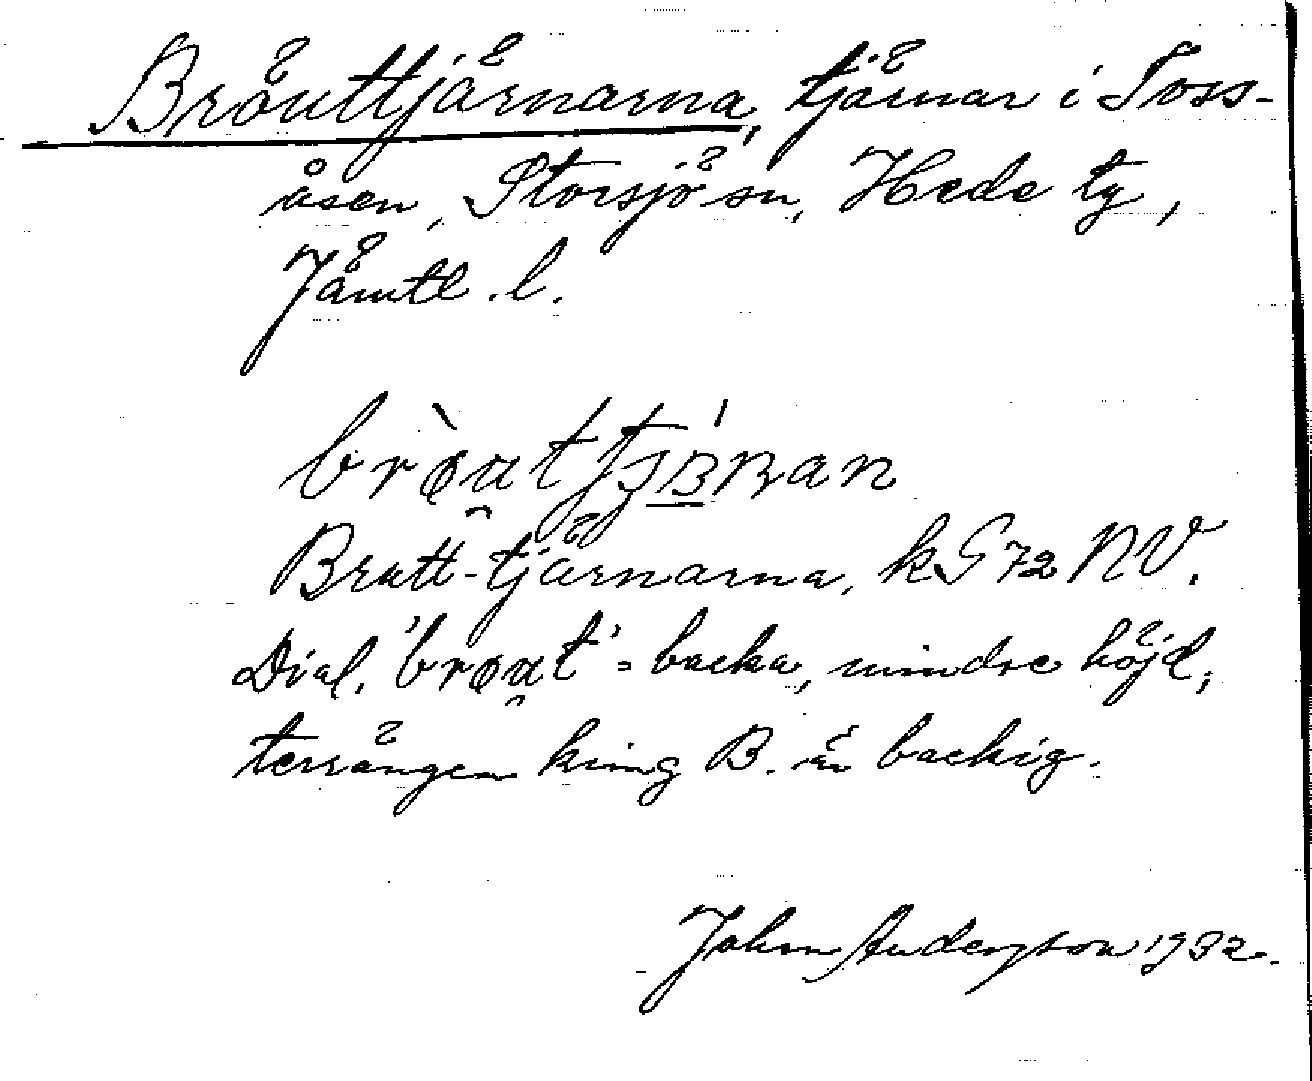 Bröuttjärnarna, tjärnar i Toss-
åsen, Storsjö sn, Hede tg,
Jämtl. l.
brø̀ɑt
Brutt-tjärnarna, kG 72 NV.
Dial. 'brøɑt' = backa, mindre höjd,
terrängen kring B. är backig.
John Andersson 1932.